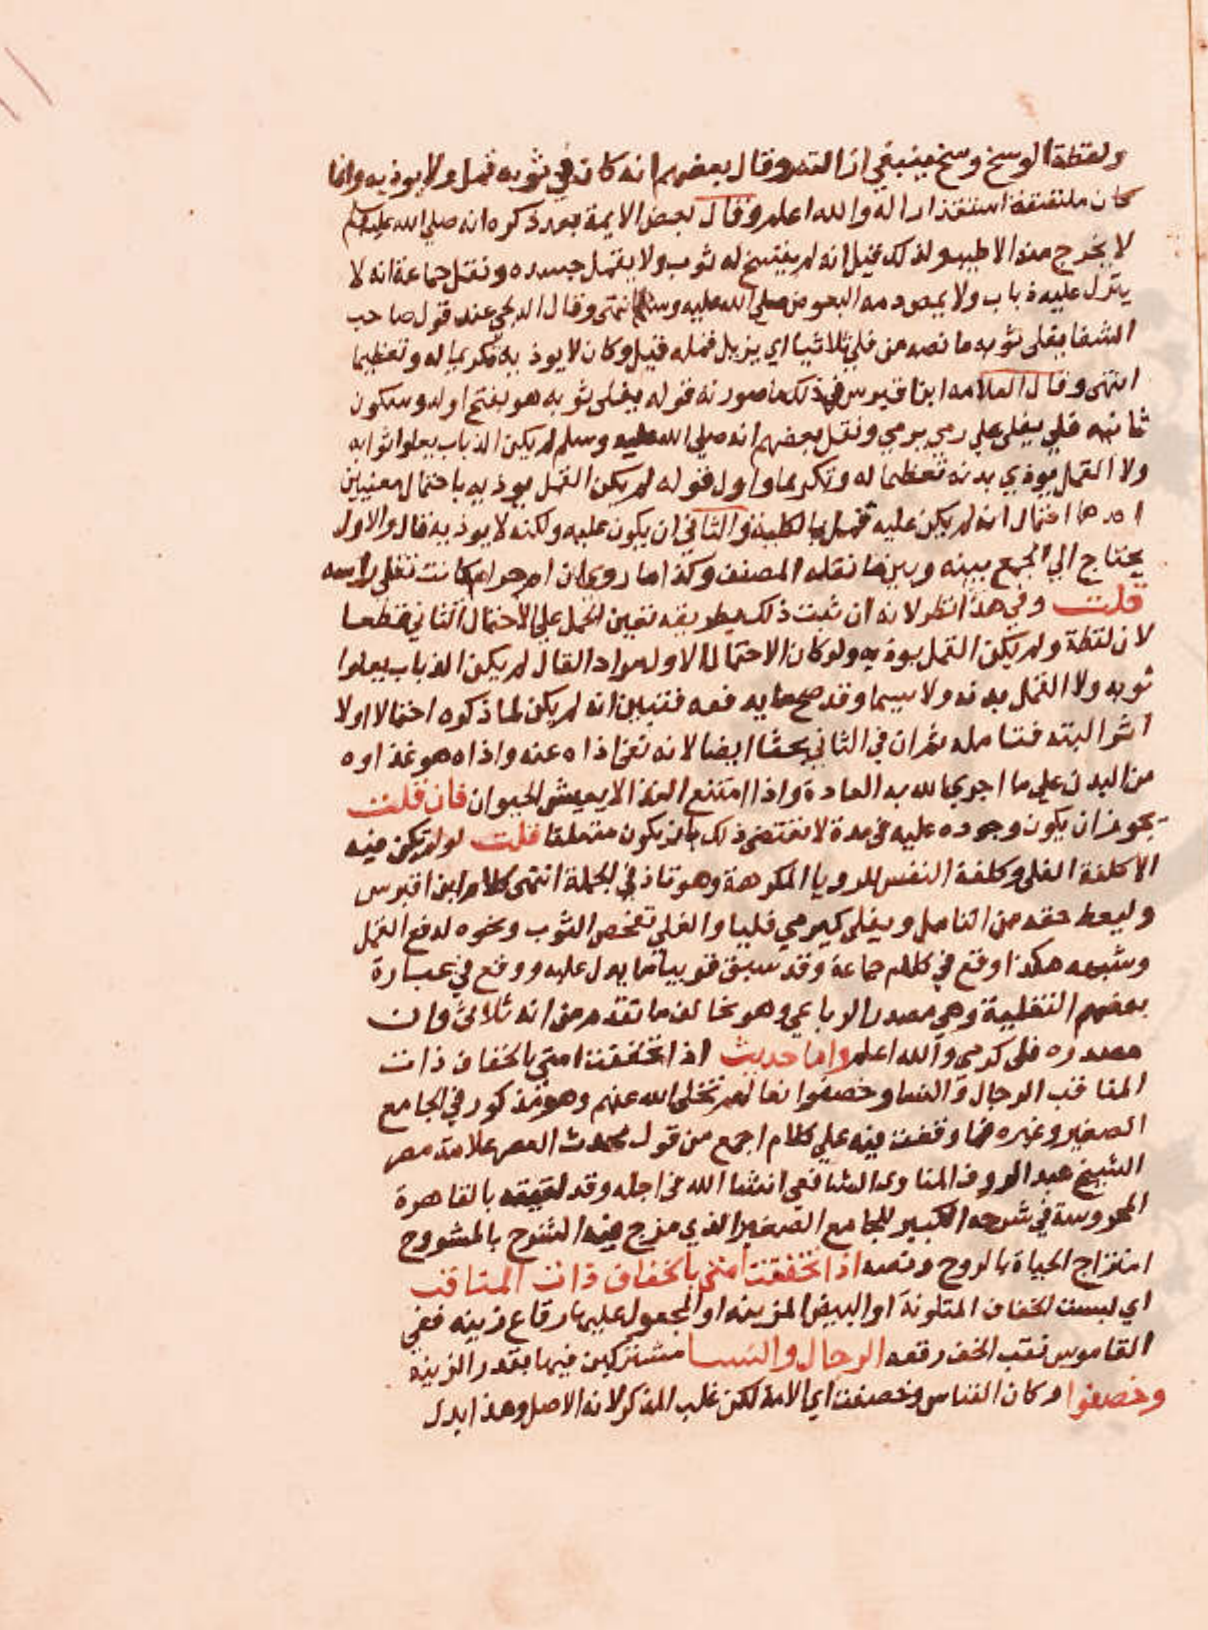 ولفظة الوسخ وسخ ينبغي ان التعد وقال بعضهم انه كان في ثوبه قمل ولا يوذيه وانما
كان ملتقطه استقذارا له والله اعلم وقال بعض الايمة بعد ذكره انه صلي الله عليه وسلم
لا يخرج منه الا طيب ولذلك قيل انه لم يتسخ له ثوب ولا يقمل جسده ونقل جماعة انه لا
ينزل عليه ذباب ولا يمص دمه البعوض صلي الله عليه وسلم انتهى وقال الدلجي عند قول صاحب
الشفا يفلى ثوبه ما نصه من فلي ثلاثيا اي يزيل قمله قيل وكان لا يوذيه تكريما له وتعظيما
انتهى وقال العلامه ابن اقبرس في ذلك ما صورته قوله يفلى ثوبه هو بفتح اوله وسكون
ثانيه فلي يفلي علي رمي يرمي ونقل بعضهم انه صلي الله عليه وسلم لم يكن الذباب يعلوا اثوابه
ولا القمل يوذي بدنه تعظيما له وتكريما واول قوله لم يكن القمل يوذيه باحتمال معنيين
احدهما احتمال انه لم يكن عليه قمل بالكلية والثاني ان يكون عليه ولكنه لا يوذيه قال والاول
يحتاج الي الجمع بينه وبين ما نقله المصنف وكذا ما روى ان ام حرام كانت تفلي راسه
قلت وفي هذا نظر لانه ان ثبت ذلك بطريقه تعين الحمل علي الاحتمال الثاني قطعا
لان لفظة ولم يكن القمل يوذيه ولو كان الاحتمال الاول مراد القال لم يكن الذباب يعلوا
ثوبه ولا القمل بدنه ولا سيما وقد صح فتبين انه لم يكن لما ذكره احتمالا اولا
اثر البته فتامله ثم ان في الثاني بحثا ايضا لانه نفى اذاه عنه واذاه هو غذاوه
من البدن علي ما اجرى الله به العادة واذا امتنع الغذا لا يعيش الحيوان فان قلت
يجوز ان يكون وجوده عليه في مدة لا تقتضى ذلك بان يكون متعلقا قلت لو لم يكن فيه
الا كلفة الفلى وكلفة النفس للرويا المكرهة وهو تاذ في الجملة انتهى كلام ابن اقبرس
وليعط حقه من التامل ويفلى كيرمي فليا والفلي تفحص الثوب ونحوه لدفع القمل
وشبهه هكذا وقع في كلام جماعة وقد سبق قريبا ما يدل عليه ووقع في عبارة
بعضهم التفلية وهي مصدر الرباعي وهو يخالف ما تقدم من انه ثلاثى وان
مصدره فلى كرمى والله اعلم واما حديث اذا تخففت امتي بالخفاف ذات
المناقب الرجال والنسا وخصفوا نعالهم تخلى الله عنهم وهو مذكور في الجامع
الصغير وغيره فما وقفت فيه علي كلام اجمع من قول محدث العصر علامة مصر
الشيخ عبد الروف المناوي الشافعي انشا الله في اجله وقد لقيته بالقاهرة
المحروسة في شرحه الكبير للجامع الصغير الذي مزج فيه الشرح بالمشروح
امتزاج الحياة بالروح ونصه اذا تخففت امتي بالخفاف ذات المناقب
اي لبست الخفاف المتلونة او البيض المزينه او المجعول عليها رقاع زينه ففي
القاموس نقب الخف رقعه الرجال والنسا مشتركين فيها بقدر الزينه
وخصفوا وكان القياس وخصفت اي الامة لكن غلب المذكر لانه الاصل وهذا يدل